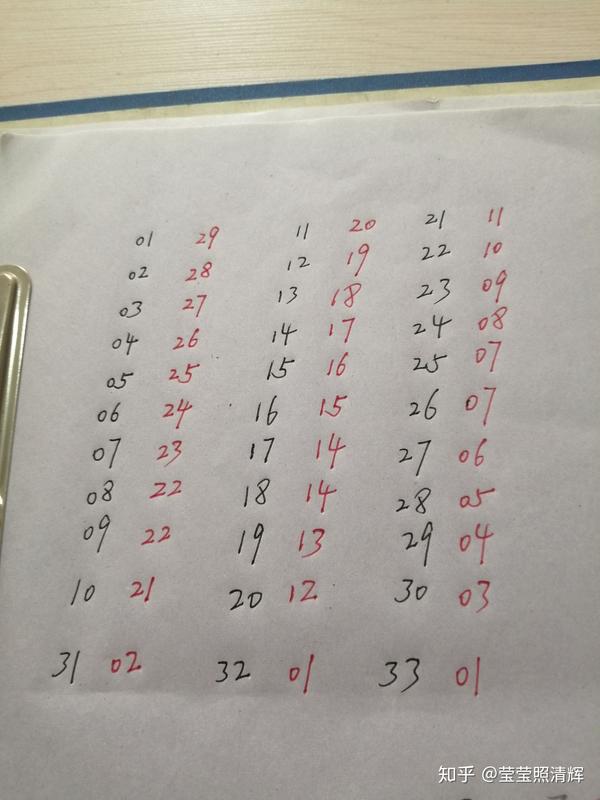 01 29 11 20 21 11
02 28 12 19 22 10
03 27 13 18 23 09
04 26 14 17 24 08
05 25 15 16 25 07
06 24 16 15 26 07
07 23 17 14 27 06
08 22 18 14 28 05
09 22 19 13 29 04
10 21 20 12 30 03
31 02 32 01 33 01
知乎 @莹莹照清辉